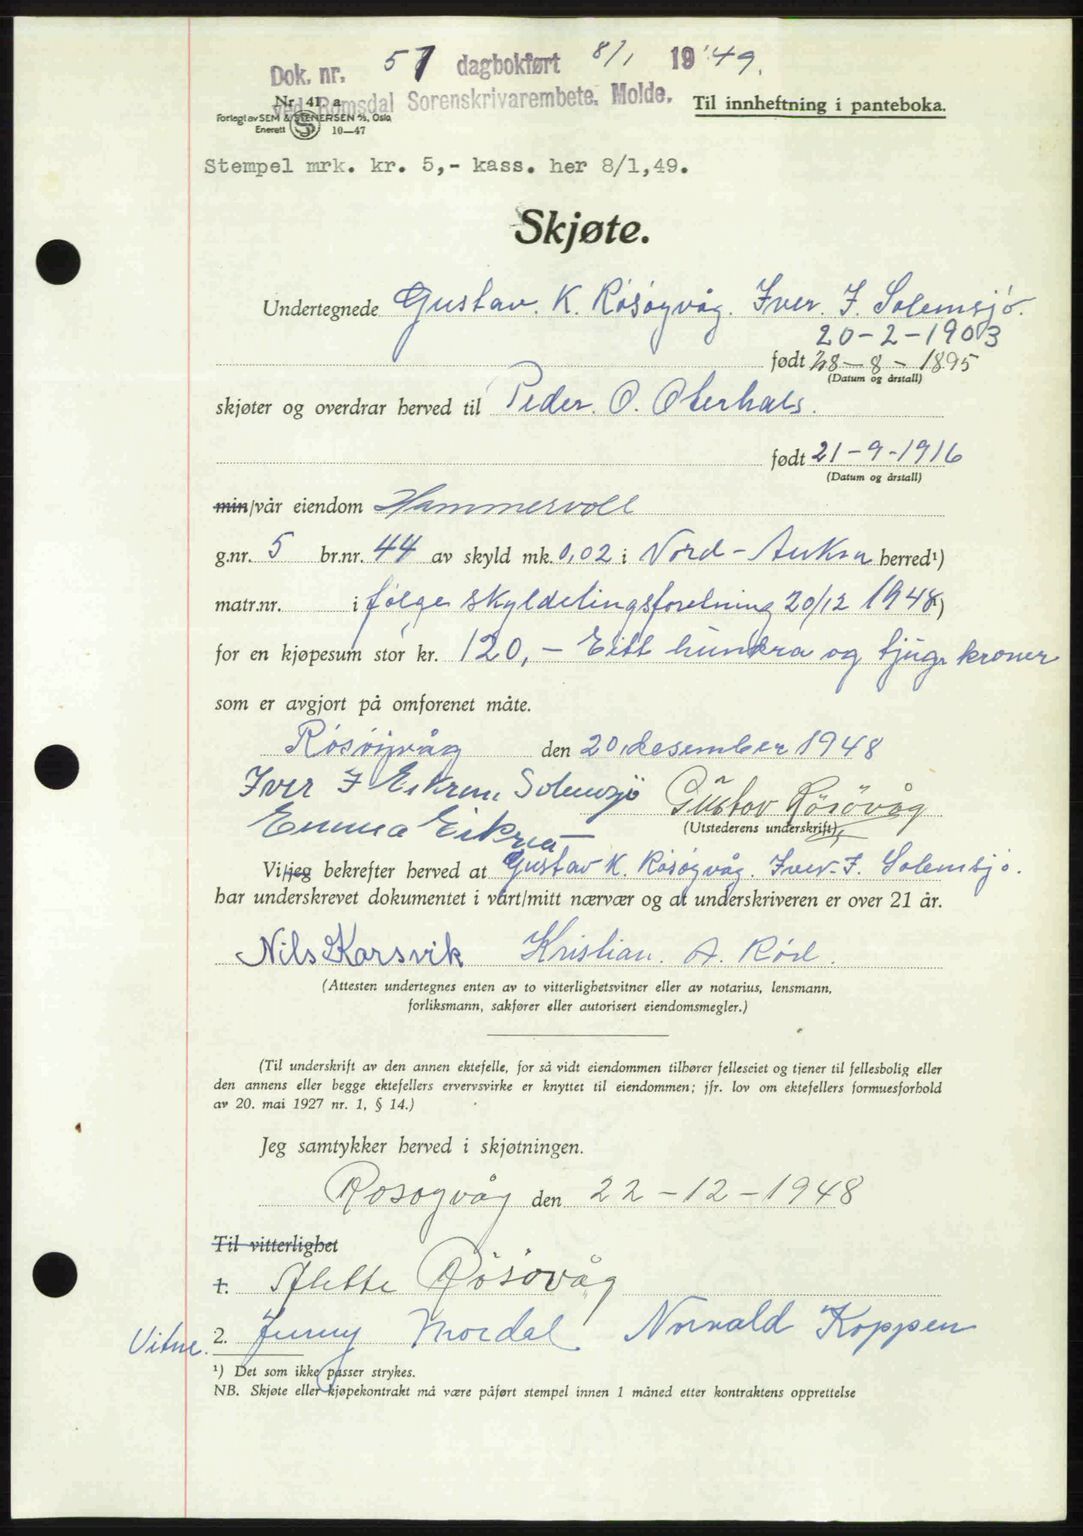 Dok. nr. 57 dagbokført 8/1 19'49.
ved Romsdal Sorenskrivarembete, Molde.
Nr. 41 a
Til innheftning i panteboka.
Forlagt av SEM & STENERSEN A/S, Oslo
Enerett 10—47
Stempel mrk. kr. 5,- kass. her 8/1,49.
Skjøte.
Undertegnede Gustav. K. Røsøgvåg. Iver. I. Solemsjø.
20-2-1903
født 28-8-1895
(Datum og årstall)
skjøter og overdrar herved til Peder. O. Oterhals.
født 21-9-1916
(Datum og årstall)
min/vår eiendom Hammervoll
g.nr. 5 br.nr. 44 av skyld mk. 0,02 i Nord-Aukra herred¹)
matr.nr. i følge skyldelingsforretning 20/12 1948)
for en kjøpesum stor kr. 120,- Eitt hundra og tjuge kroner
som er avgjort på omforenet måte.
Røsøgvåg den 20. desember 1948
Iver I Eikrem Solemsjø Gustav Røsøvåg
Emma Eikrem
(Utstederens underskrift)
Vi/jeg bekrefter herved at Gustav K. Røsøgvåg. Iver. I. Solemsjø.
har underskrevet dokumentet i vårt/mitt nærvær og at underskriveren er over 21 år.
Nils Karsvik Kristian. A. Rød.
(Attesten undertegnes enten av to vitterlighetsvitner eller av notarius, lensmann,
forliksmann, sakfører eller autorisert eiendomsmegler.)
(Til underskrift av den annen ektefelle, for så vidt eiendommen tilhører felleseiet og tjener til fellesbolig eller
den annens eller begge ektefellers ervervsvirke er knyttet til eiendommen; jfr. lov om ektefellers formuesforhold
av 20. mai 1927 nr. 1, § 14.)
Jeg samtykker herved i skjøtningen.
Rosogvåg den 22-12-1948
Til vitterlighet
1. Alette Røsøvåg
Vitne. 2. Jenny Mordal Norvald Koppen
¹) Det som ikke passer strykes.
NB. Skjøte eller kjøpekontrakt må være påført stempel innen 1 måned etter kontraktens opprettelse